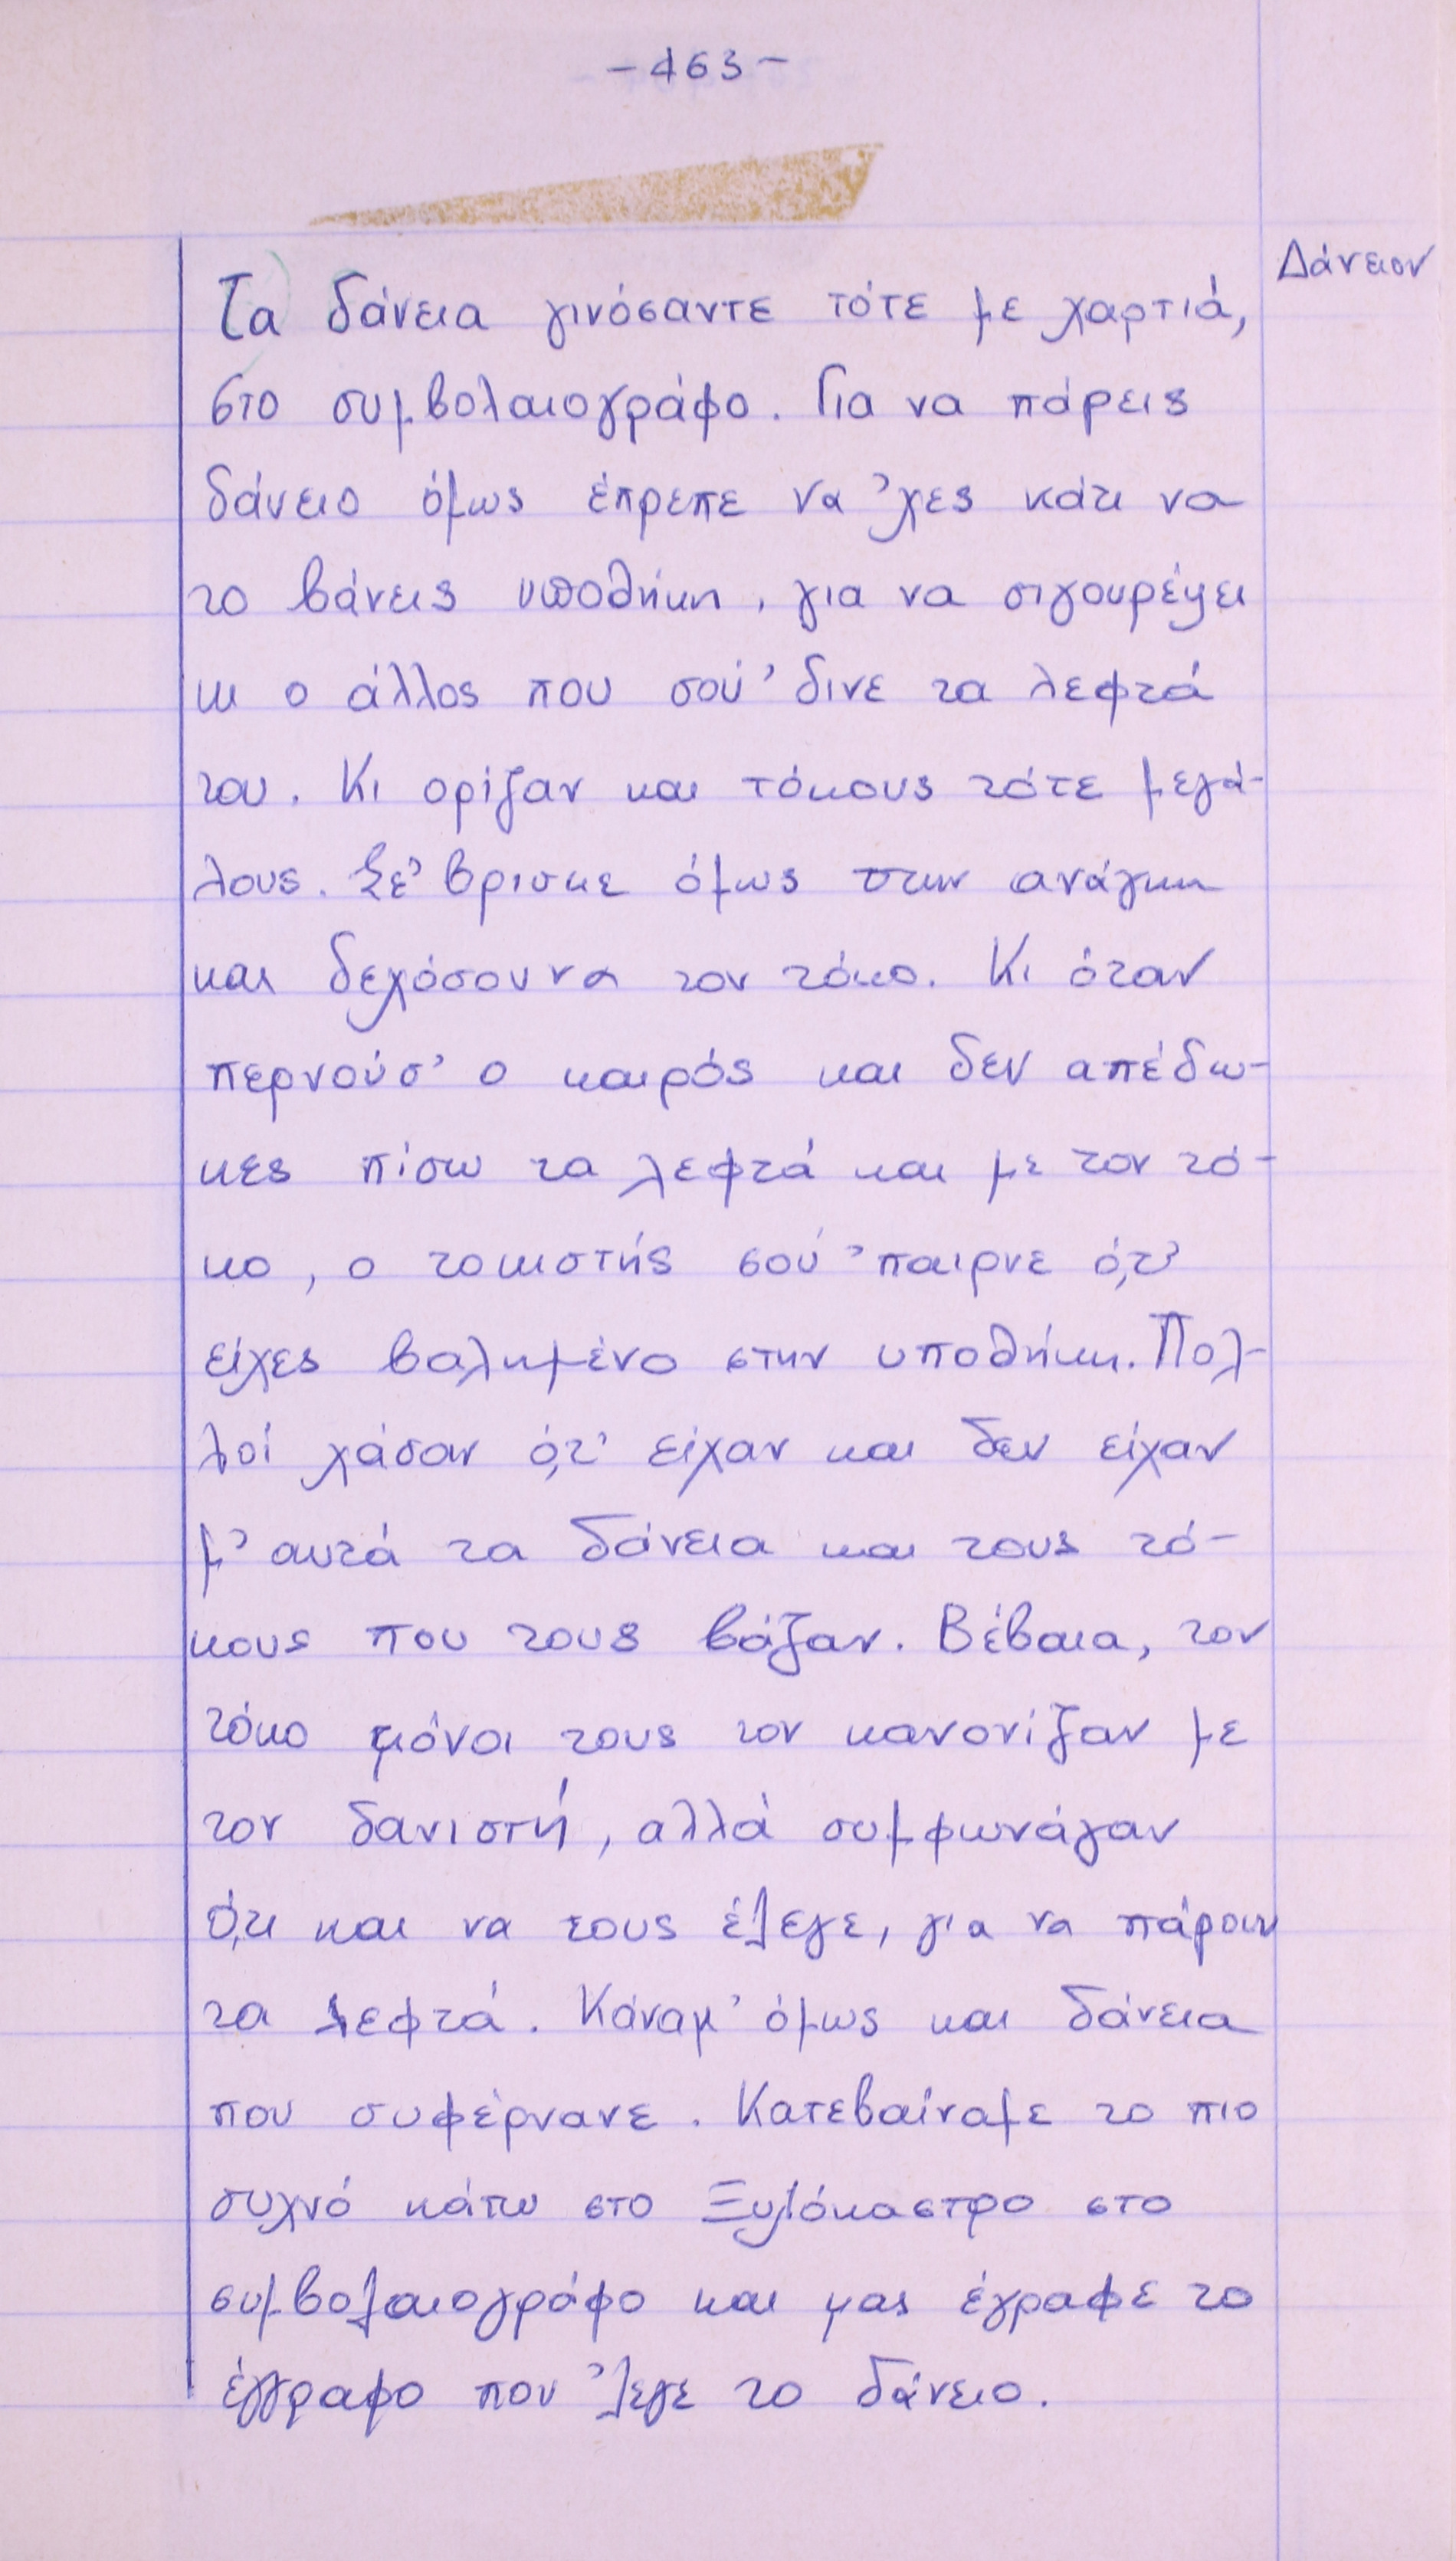 -463-
Δάνειον
Τα δάνεια γινόσαντε τότε με χαρτιά,
στο συμβολαιογράφο. Για να πάρεις
δάνειο όμως έπρεπε να 'χες κάτι να
το βάνεις υποθήκη, για να σιγουρέψει
κι ο άλλος που σού 'δινε τα λεφτά
του. Κι ορίζαν και τόκους τότε μεγά-
λους. Σέ 'βρισκε όμως στην ανάγκη
και δεχόσουνα τον τόκο. Κι όταν
περνούσ' ο καιρός και δεν απέδω-
κες πίσω τα λεφτά και με τον τό-
κο, ο τοκιστής σού 'παιρνε ό,τ'
είχες βαλημένο στην υποθήκη. Πολ-
λοί χάσαν ό,τ' είχαν και δεν είχαν
μ' αυτά τα δάνεια και τους τό-
κους που τους βάζαν. Βέβαια, τον
τόκο μόνοι τους τον κανονίζαν με
τον δανιστή, αλλά συμφωνάγαν
ό,τι και να τους έλεγε, για να πάρουν
τα λεφτά. Κάναμ' όμως και δάνεια
που συφέρνανε. Κατεβαίναμε το πιο
συχνό κάτω στο Ξυλόκαστρο στο
συμβολαιογράφο και μας έγραφε το
έγγραφο που 'λεγε το δάνειο.